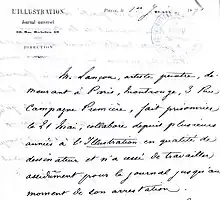 L'ILLUSTRATION
Journal universel
DIRECTION
Paris, le
M. Lançon, artiste peintre, de-
meurant à Paris, Montrouge, 3 Rue
Campagne Première, fait prisonnier
le 21 Mai, collabore depuis plusieurs
années à l'Illustration en qualité de
dessinateur et n'a cessé de travailler
assidûment pour le journal jusqu'au
moment de son arrestation.